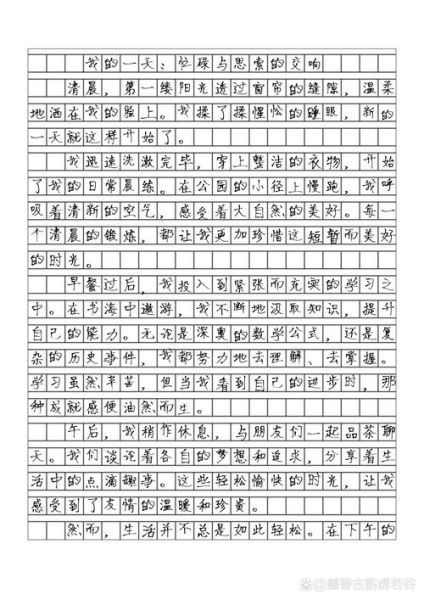 我的一天：忙碌与思索的交响
清晨，第一缕阳光透过窗帘的缝隙，温柔
地洒在我的脸上。我揉了揉惺忪的睡眼，新的
一天就这样开始了。
我迅速洗漱完毕，穿上整洁的衣物，开始
了我的日常晨练。在公园的小径上慢跑，我呼
吸着清新的空气，感受着大自然的美好。每一
个清晨的锻炼，都让我更加珍惜这短暂而美好
的时光。
早餐过后，我投入到紧张而充实的学习之
中。在书海中遨游，我不断地汲取知识，提升
自己的能力。无论是深奥的数学公式，还是复
杂的历史事件，我都努力地去理解、去掌握。
学习虽然辛苦，但当我看到自己的进步时，那
种成就感便油然而生。
午后，我稍作休息，与朋友们一起品茶聊
天。我们谈论着各自的梦想和追求，分享着生
活中的点滴趣事。这些轻松愉快的时光，让我
感受到了友情的温暖和珍贵。
然而，生活并不总是如此轻松。在下午的
@墨香古韵虚若谷